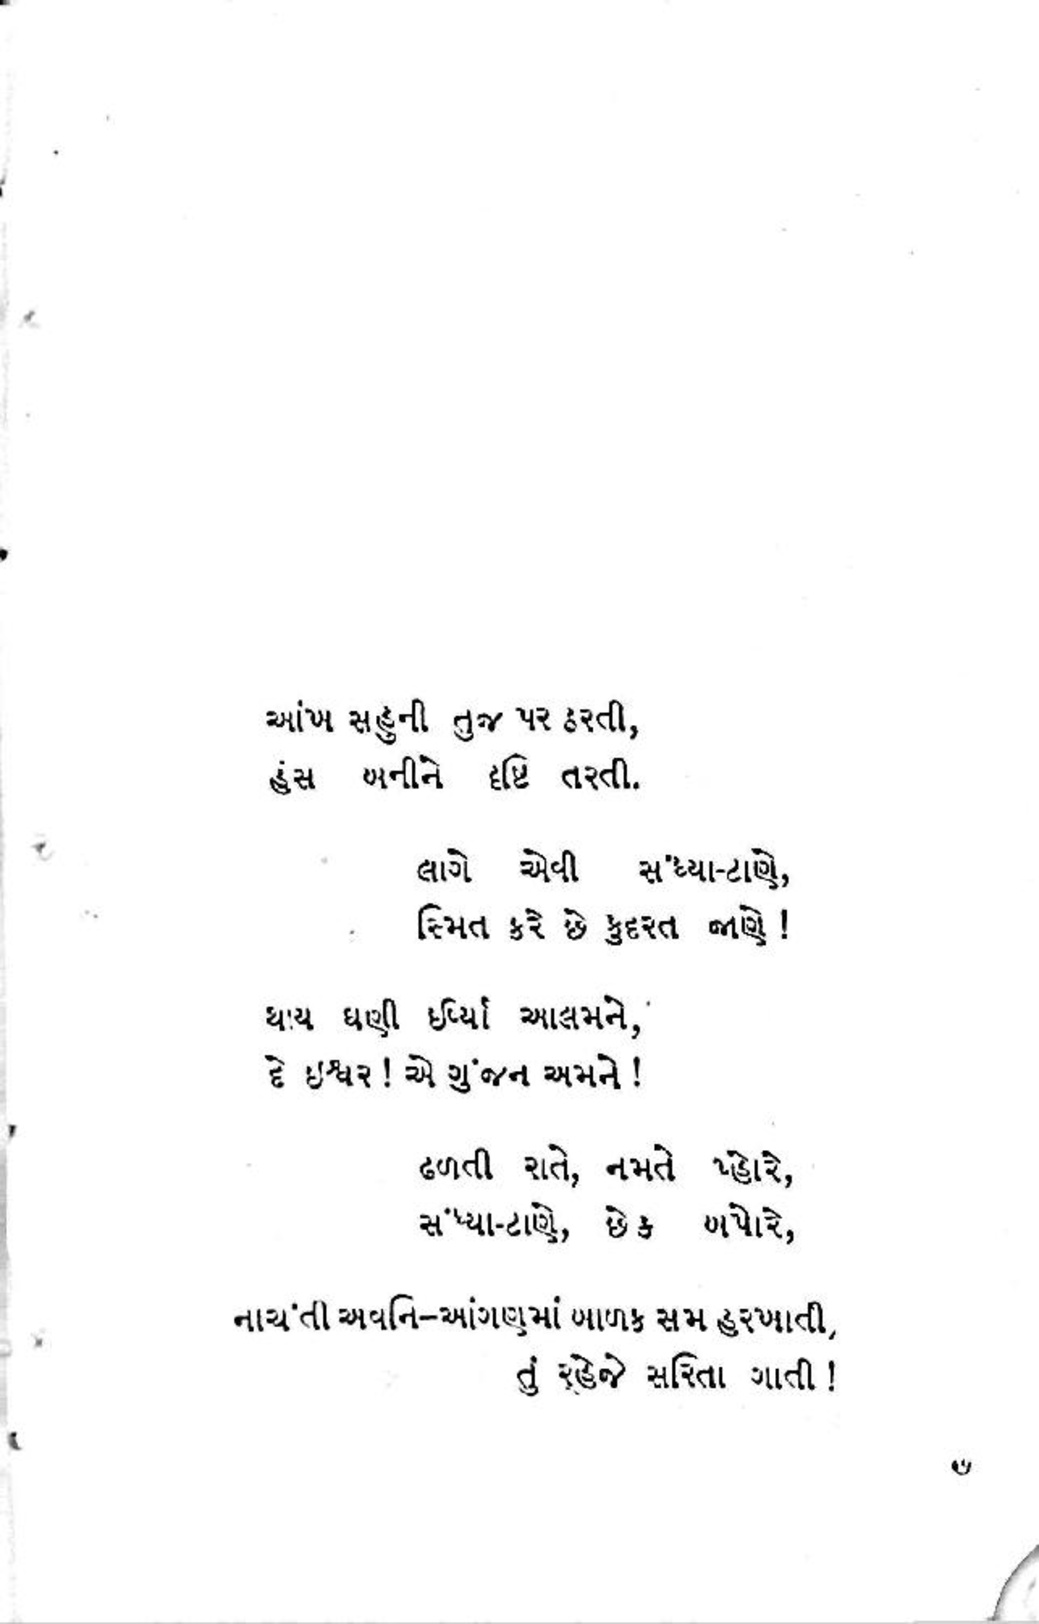 આંખ સહુની તુજ પર ઠરતી,
હંસ બનીને દૃષ્ટિ તરતી.
લાગે એવી સંધ્યા-ટાણે,
સ્મિત કરે છે કુદરત જાણે !
થાય ઘણી ઈર્ષ્યા આલમને,
દે ઇશ્વર ! એ ગુંજન અમને !
ઢળતી રાતે, નમતે પ્હોરે,
સંધ્યા-ટાણે, છેક બપોરે,
નાચંતી અવનિ–આંગણમાં બાળક સમ હરખાતી,
તું ર્‌હેજે સરિતા ગાતી !
૭